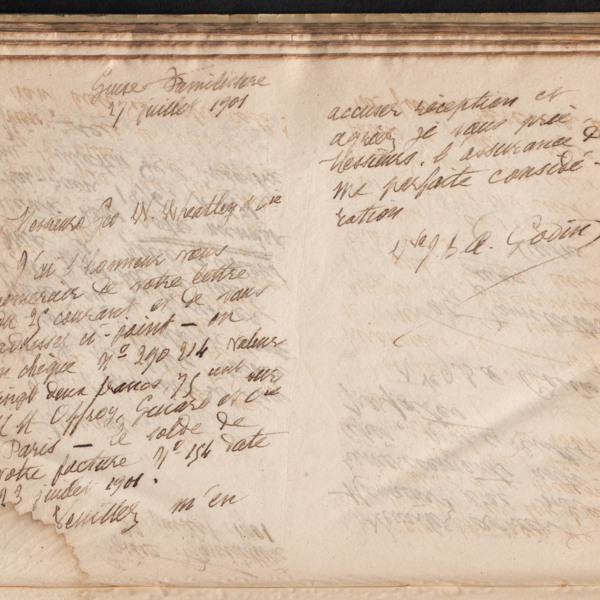 Guise Familistère
27 juillet 1901
Messieurs Geo W. Wheatley & Cie
J'ai l'honneur vous
remercier de votre lettre
du 25 courant et de vous
adresser ci-joint — en
un chèque Nº 290 214 valeur
vingt deux francs 75 sur
Offroy, Guiard et Cie
Paris — le solde de
votre facture Nº 154 date
23 juillet 1901.
Veuillez m'en
accuser réception et
agréer je vous prie
Messieurs, l'assurance de
ma parfaite considé-
ration
J. B. A. Godin